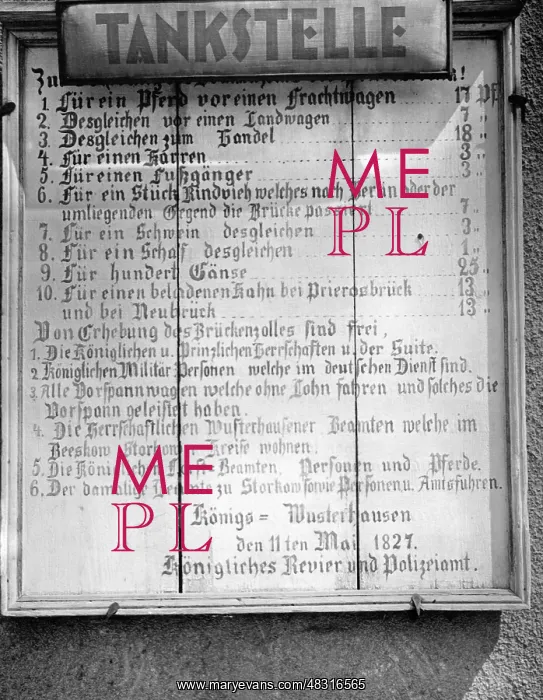 TANKSTELLE
1. Für ein Pferd vor einen Frachtwagen 17 Pf
2. Desgleichen vor einen Landwagen 7 "
3. Desgleichen zum Handel 18 "
4. Für einen Karren 3 "
5. Für einen Fußgänger 3 "
6. Für ein Stück Rindvieh welches nach Berlin oder der
umliegenden Gegend die Brücke passiert 7 "
7. Für ein Schwein desgleichen 3 "
8. Für ein Schaf desgleichen 1 "
9. Für hundert Gänse 25 "
10. Für einen beladenen Kahn bei Prierosbrück 13 "
und bei Neubrück 13 "
Von Erhebung des Brückenzolles sind frei,
1. Die Königlichen u. Prinzlichen Herrschaften u. der Suite.
2. Königlichen Militär Personen welche im deutschen Dienst sind.
3. Alle Vorspannwagen welche ohne Lohn fahren und solches die
Vorspann geleistet haben.
4. Die Herrschaftlichen Wusterhausener Beamten welche im
Beeskow Storkow Kreise wohnen.
5. Die Beamten, Personen und Pferde.
6. Der damalige Beamte zu Storkow sowie Personen u. Amtsfuhren.
Königs = Wusterhausen
den 11ten Mai 1827.
Königliches Revier und Polizeiamt.
ME
PL
ME
PL
www.maryevans.com/48316565